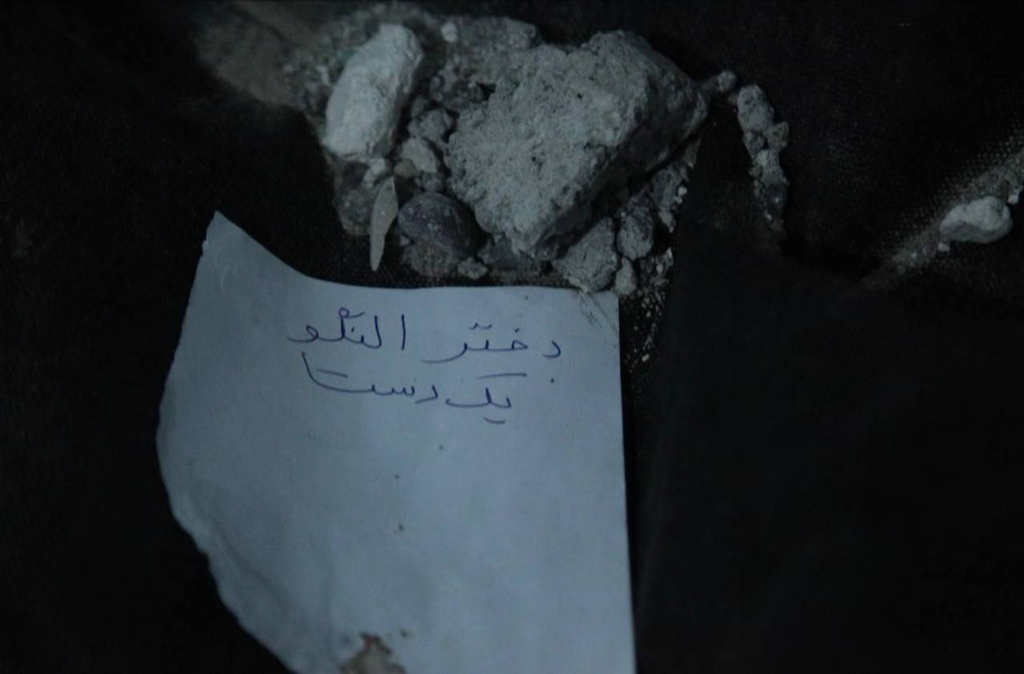 دختر النگو
یک دست